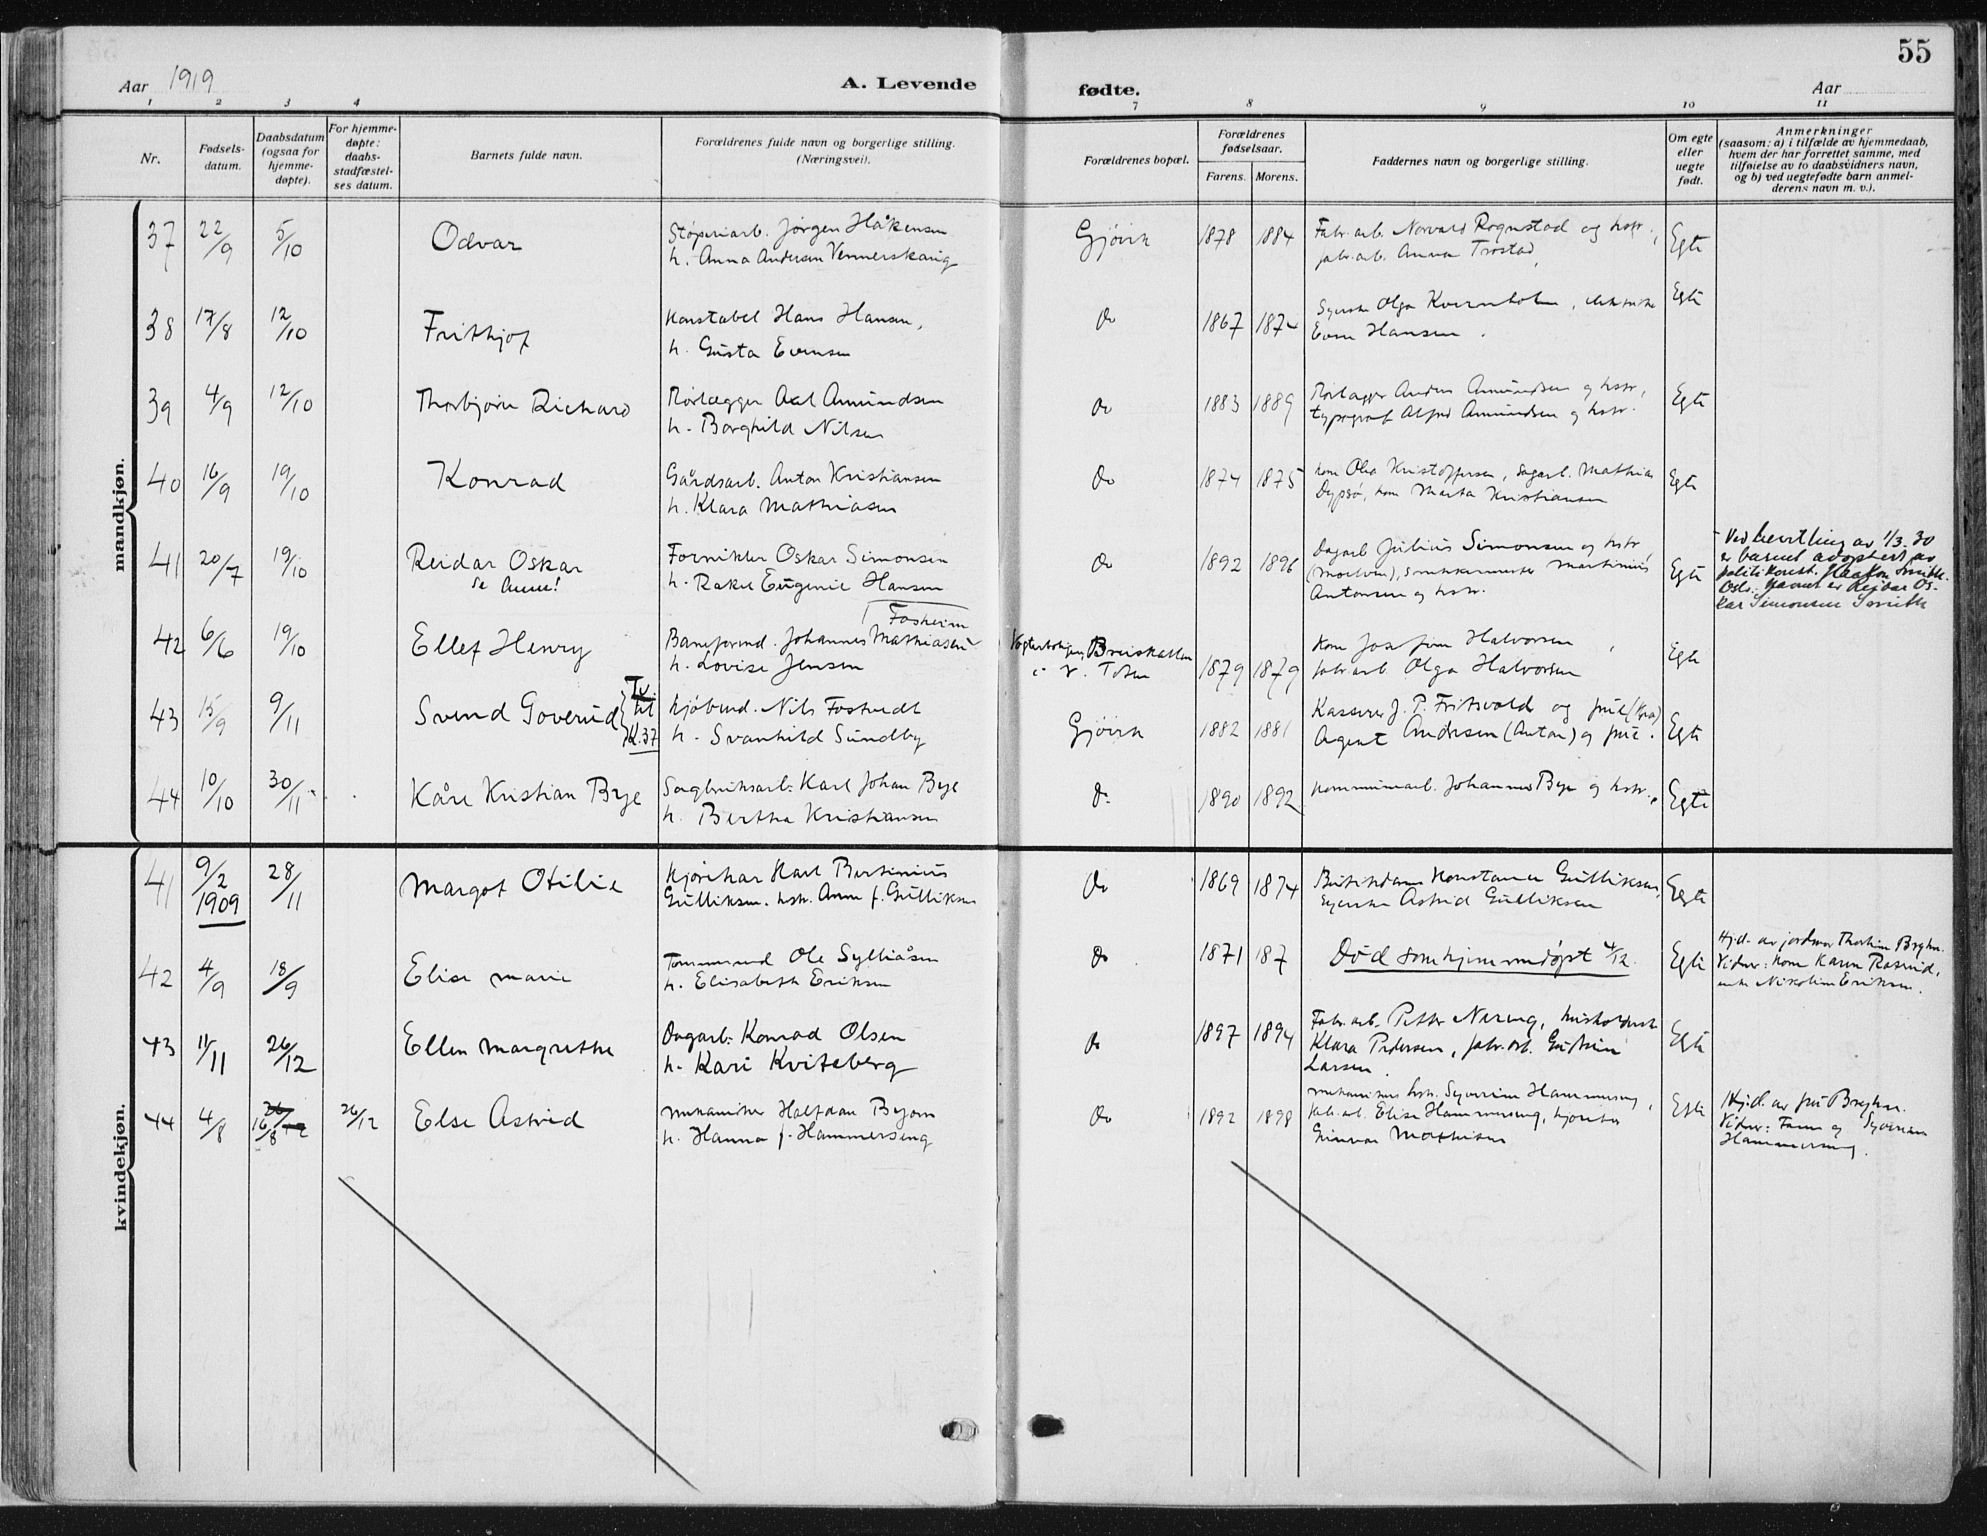 55
Aar 1919
A. Levende
fødte.
Aar
1 2 3 4
7 8 9 10 11
Nr.
Fødsels-
datum.
Daabsdatum
(ogsaa for
hjemme-
døpte).
For hjemme-
døpte:
daabs-
stadfæstel-
ses datum.
Barnets fulde navn.
Forældrenes fulde navn og borgerlige stilling.
(Næringsvei).
Forældrenes bopæl.
Forældrenes
fødselsaar.
Farens. Morens.
Faddernes navn og borgerlige stilling.
Om egte
eller
uegte
født.
Anmerkninger
(saasom: a) i tilfælde av hjemmedaab,
hvem der har forrettet samme, med
tilføielse av to daabsvidners navn,
og b) ved uegtefødte barn anmel-
derens navn m. v.).
mandkjøn.
37 22/9 5/10 Odvar
Støperiarb. Jørgen Håkensen
h. Anna Andersen Vennerskaug
Gjøvik 1878 1884
Fabr.arb. Norvald Rognstad og hstr.,
fabr.arb. Anna Trøstad
Egte
38 17/8 12/10 Frithjof
Konstabel Hans Hansen,
h. Gusta Evensen
Do 1867 1874
Syerske Olga Kvernholm,
Even Hansen.
Egte
39 4/9 12/10 Thorbjørn Richard
Rørlægger Axel Amundsen
h. Borghild Nilsen
Do 1883 1889
Rørlægger Anders Amundsen og hstr,
typograf Alfred Amundsen og hstr.
Egte
40 16/9 19/10 Konrad
Gårdsarb. Anton Kristiansen
h. Klara Mathiasen
Do 1874 1875
kone Olea Kristoffersen, sagarb. Mathias
kone Marta Kristiansen
Egte
41 20/7 19/10 Reidar Oskar
se Anm!
Fornikler Oskar Simonsen
h. Rakel Eugenie Hansen
Do 1892 1896
Dagarb. Julius Simonsen og hstr
Martinius
Antonsen og hstr.
Egte
Ved bevilling av 1/3.30
er barnet adoptert av
politikonst. Haakon Smith.
Oslo. Navnet er Reidar Os-
kar Simonsen Smith
42 6/6 19/10 Ellef Henry
Fosheim
Baneformd. Johannes Mathiasen
h. Lovise Jensen
Breiskallen
i V. Toten
1879 1879
Kone Josefine Halvorsen,
fabr.arb. Olga Halvorsen
Egte
43 15/9 9/11 Svend Goverud
Tv.
til
K.37
Kjøbmd. Nils Fostvedt
h. Svanhild Sundby
Gjøvik 1882 1881
Kasserer J. P. Fritsvold og frue
Agent Andersen (Anton) og frue.
Egte
44 10/10 30/11 Kåre Kristian Bye
Sagbruksarb. Karl Johan Bye
h. Bertha Kristiansen
Do 1890 1892
Kommunearb. Johannes Bye og hstr.
Egte
kvindekjøn.
41 9/2 1909 28/11 Margot Otilie
Kjørekar Karl Bertinius
Gulliksen. hstr. Anna f. Gulliksen
Do 1869 1874
Butikdame Konstanse Gulliksen,
Syerske Astrid Gulliksen
Egte
42 4/9 18/9 Elise Marie
Tømmermd Ole Sylliåsen
h. Elisabeth Eriksen
Do 1871 187
Død som hjemmedøpt 4/12.
Egte
Hj.d. av jordmor
Vidner: Kone Karen
enke Nikoline Eriksen.
43 11/11 26/12 Ellen Margrethe
Dagarb. Konrad Olsen
h. Kari Kviteberg
Do 1897 1894
Fabr.arb. Petter Næreng, husholdersk
Klara Pedersen, fabr.arb. Gudrun
Larsen
Egte
44 4/8 26/12 16/8 26/12 Else Astrid
Mekaniker Halfdan Byom
h. Hanna f. Hammerseng
Do 1892 1898
hstr. Syverine Hammerseng,
fabr.arb. Elise Hammerseng, kjørekar
Gunnar Mathisen
Egte
Hj.d. av fru
Vidner: Fanny og Syverine
Hammerseng.